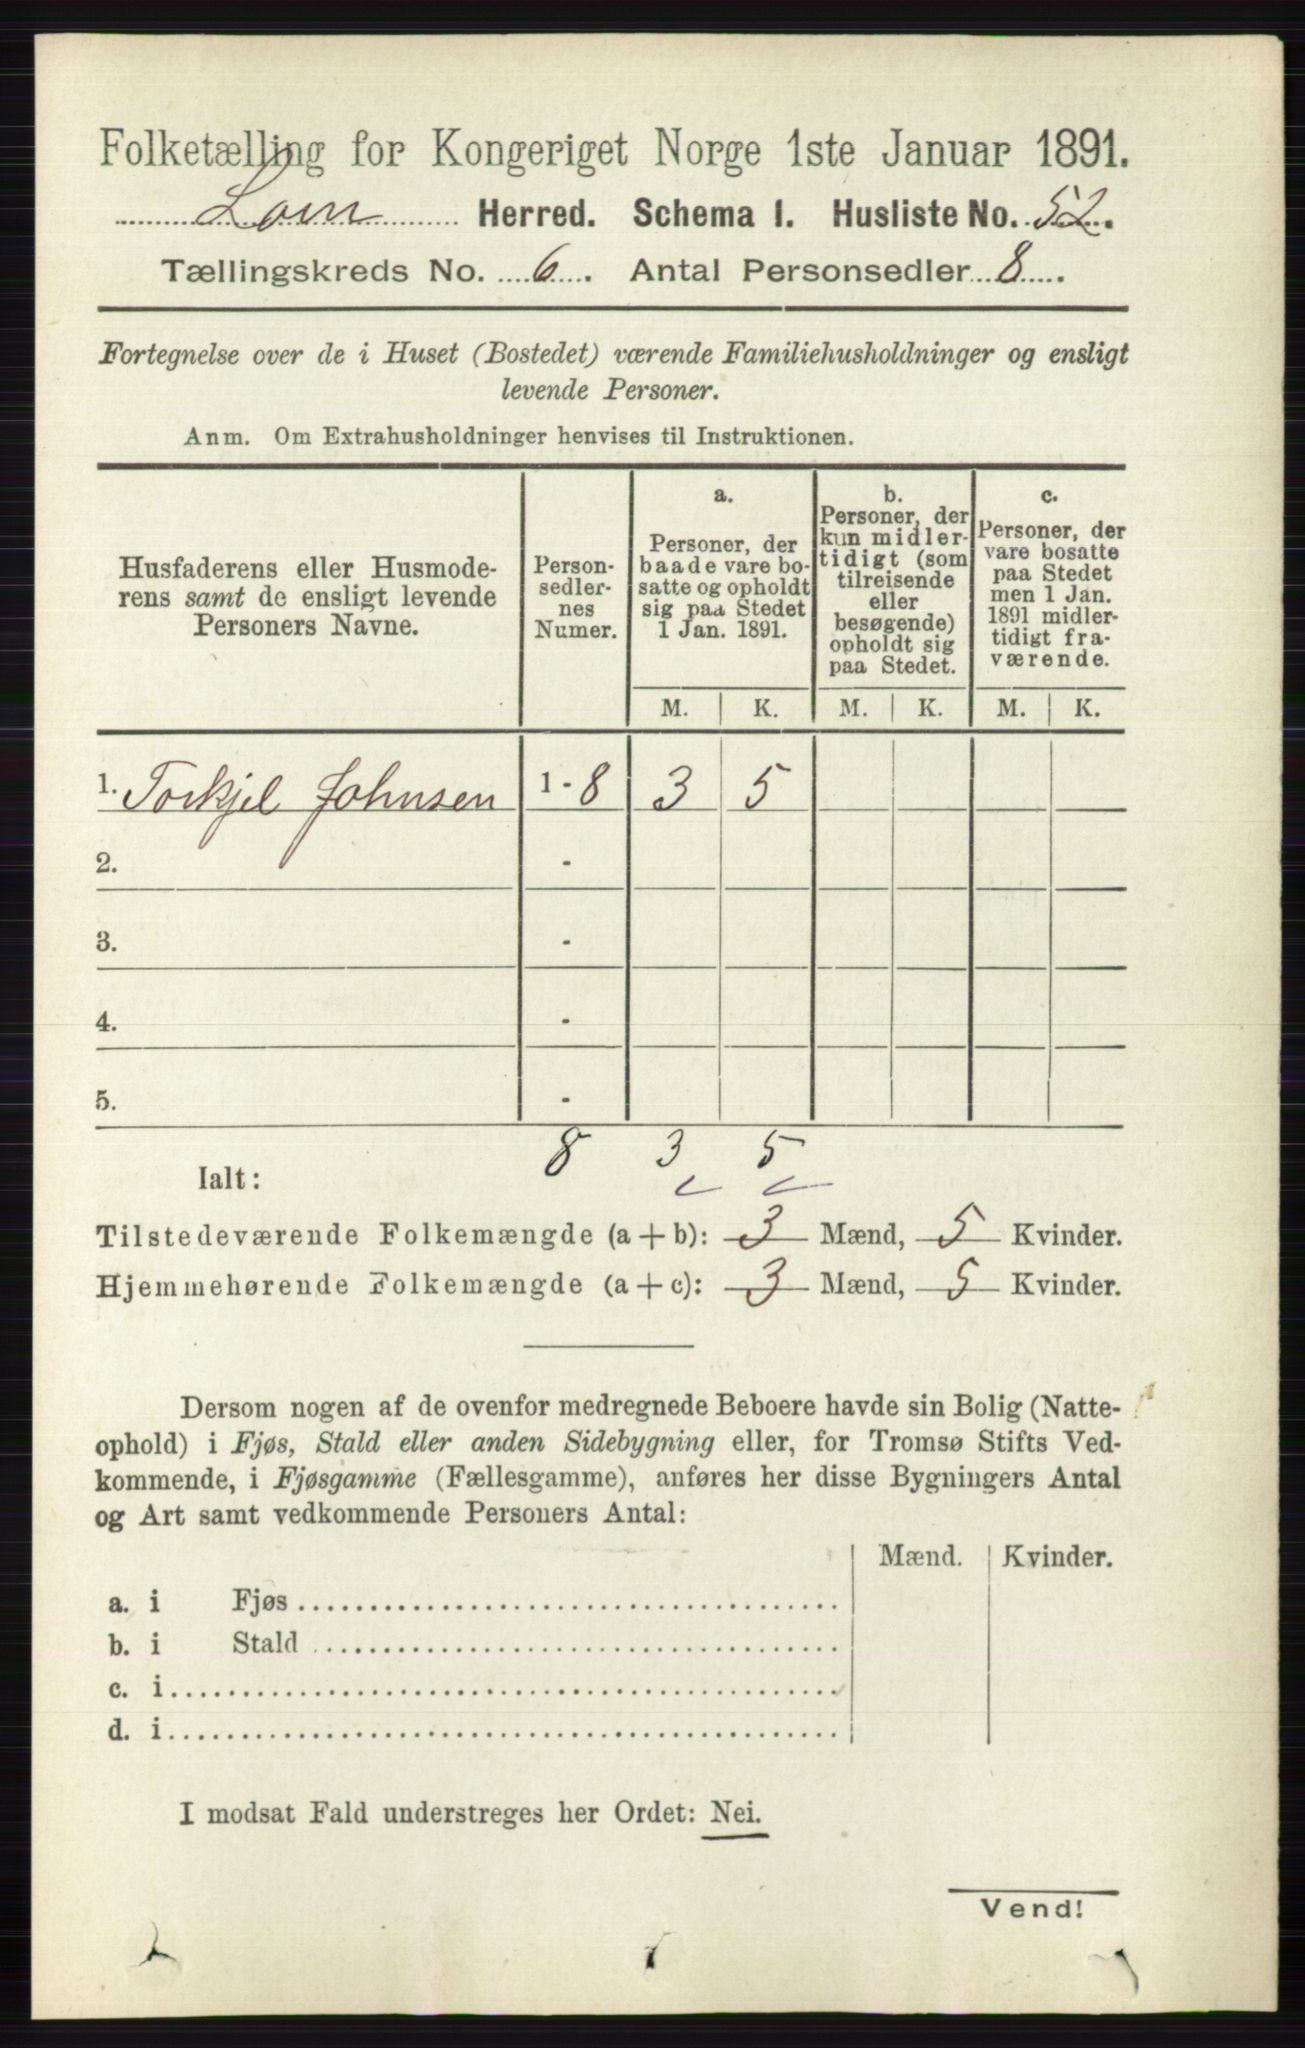 Folketælling for Kongeriget Norge 1ste Januar 1891.
Lom Herred. Schema I. Husliste No. 52.
Tællingskreds No. 6. Antal Personsedler 8.
Fortegnelse over de i Huset (Bostedet) værende Familiehusholdninger og ensligt
levende Personer.
Anm. Om Extrahusholdninger henvises til Instruktionen.
Husfaderens eller Husmode-
rens samt de ensligt levende
Personers Navne.
Person-
sedler-
nes
Numer.
a.
Personer, der
baade vare bo-
satte og opholdt
sig paa Stedet
1 Jan. 1891.
b.
Personer, der
kun midler-
tidigt (som
tilreisende
eller
besøgende)
opholdt sig
paa Stedet.
c.
Personer, der
vare bosatte
paa Stedet
men 1 Jan.
1891 midler-
tidigt fra-
værende.
M. K. M. K. M. K.
1. Torkjel Johnsen 1 - 8 3 5
2. -
3. -
4. -
5. -
8 3 5
Ialt:
Tilstedeværende Folkemængde (a + b): 3 Mænd, 5 Kvinder.
Hjemmehørende Folkemængde (a + c): 3 Mænd, 5 Kvinder.
Dersom nogen af de ovenfor medregnede Beboere havde sin Bolig (Natte-
ophold) i Fjøs, Stald eller anden Sidebygning eller, for Tromsø Stifts Ved-
kommende, i Fjøsgamme (Fællesgamme), anføres her disse Bygningers Antal
og Art samt vedkommende Personers Antal:
Mænd. Kvinder.
a. i Fjøs
b. i Stald
c. i
d. i
I modsat Fald understreges her Ordet: Nei.
Vend!